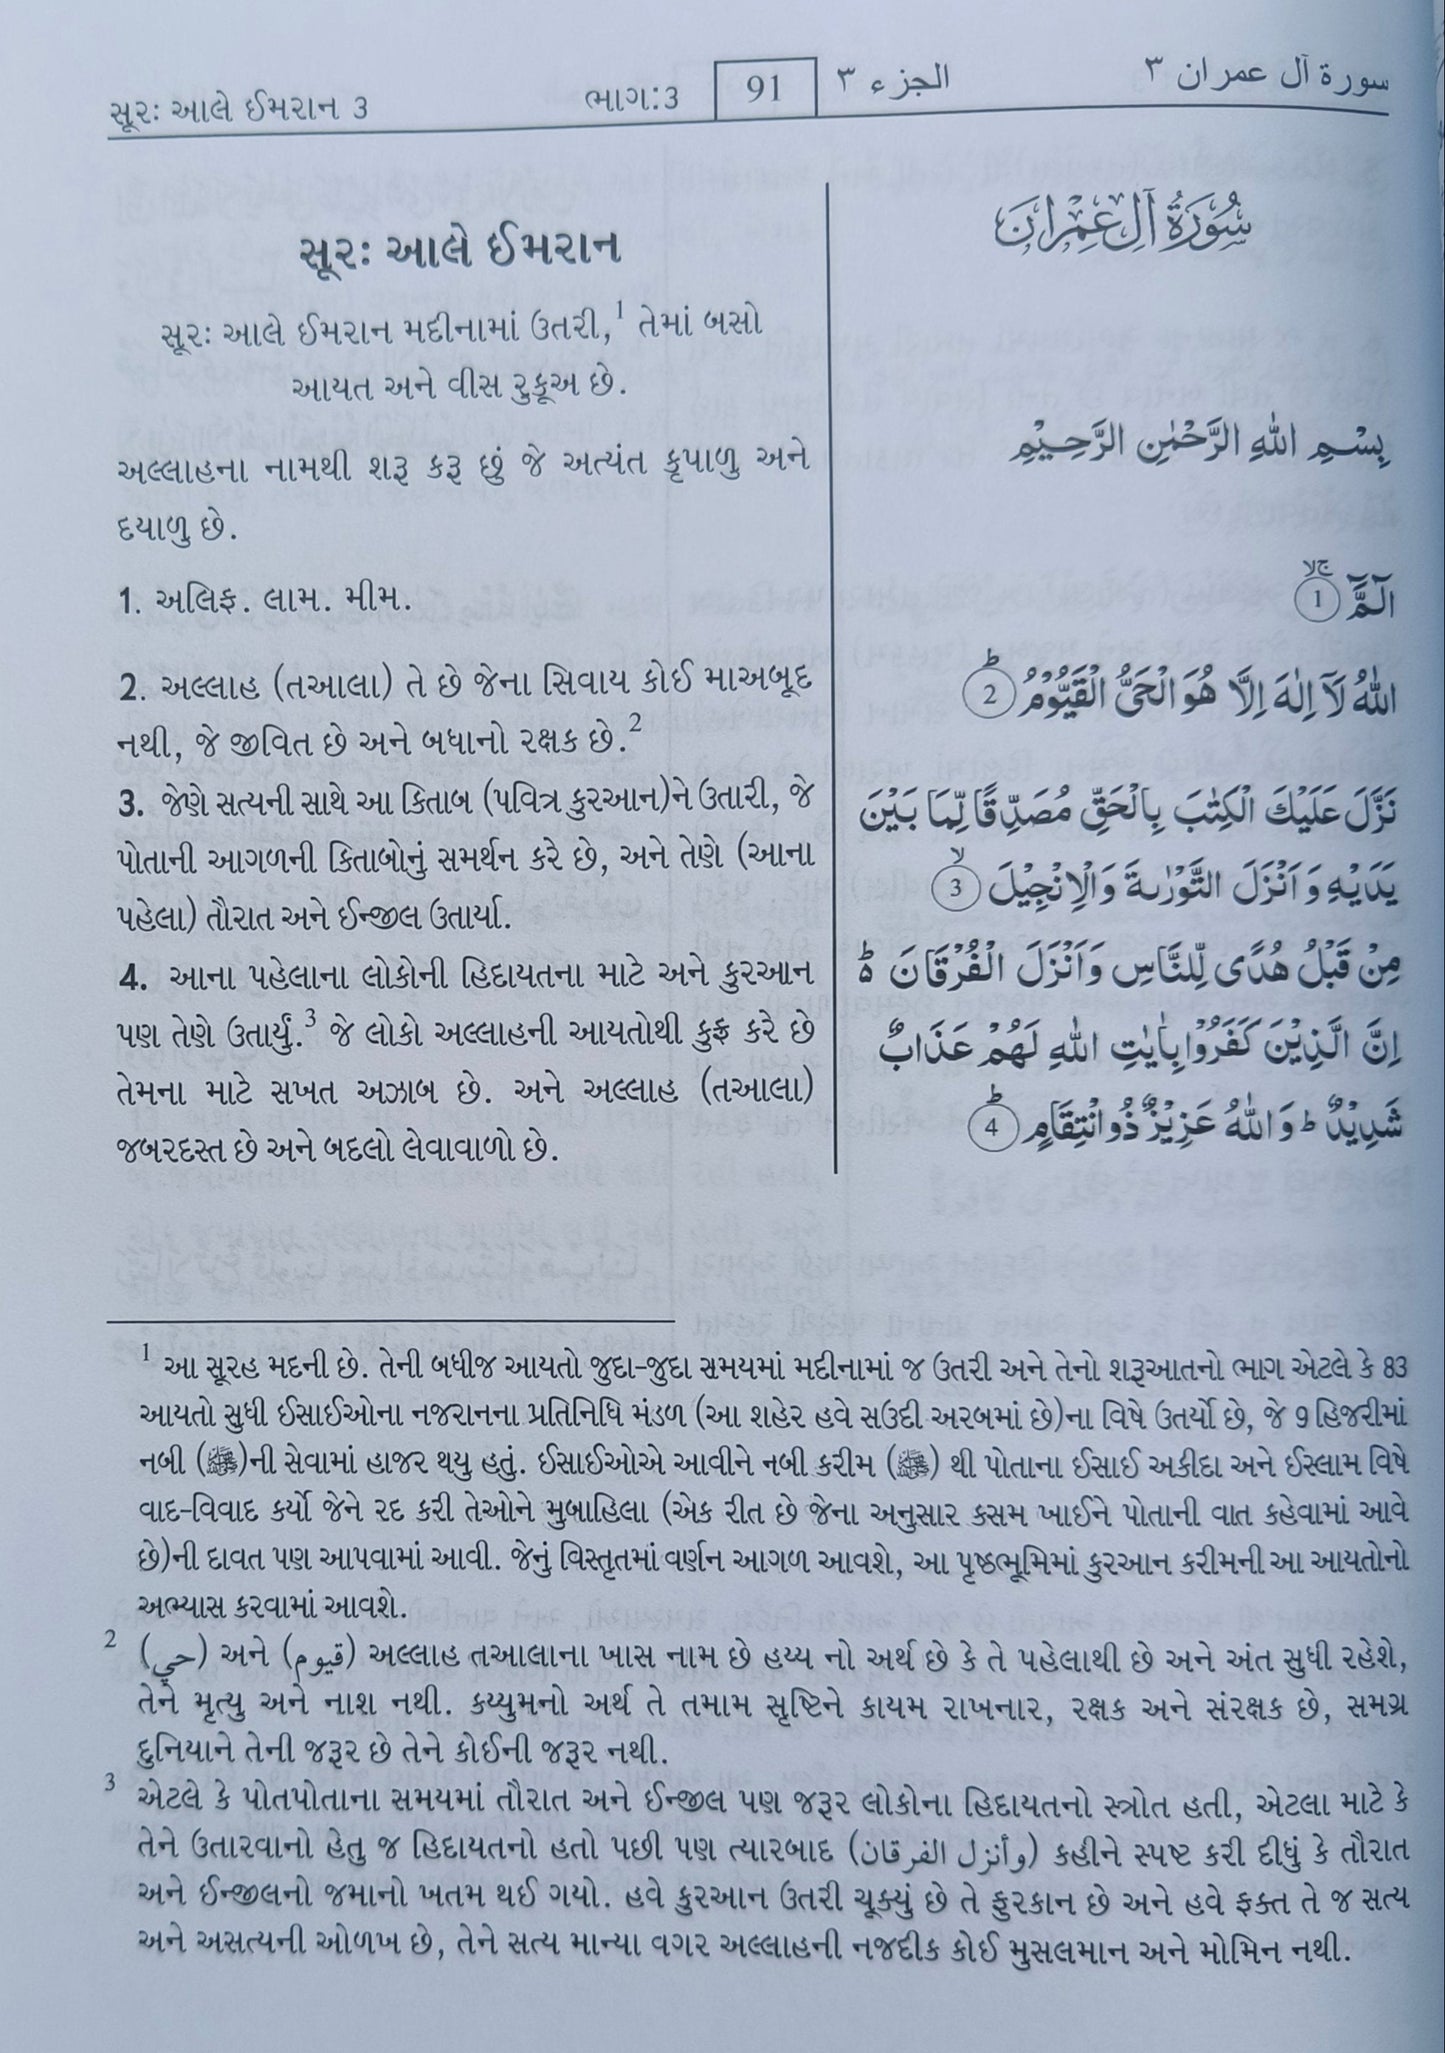 સૂરઃ આલે ઈમરાન 3
ભાગ:૩
91
الجزء ٣
سورة آل عمران ٣
સૂરઃ આલે ઈમરાન
સૂરઃ આલે ઈમરાન મદીનામાં ઉતરી,1 તેમાં બસો
આયત અને વીસ રુકૂઅ છે.
અલ્લાહના નામથી શરૂ કરૂ છું જે અત્યંત કૃપાળુ અને
દયાળુ છે.
1. અલિફ. લામ. મીમ.
2. અલ્લાહ (તઆલા) તે છે જેના સિવાય કોઈ માઅબૂદ
નથી, જે જીવિત છે અને બધાનો રક્ષક છે.2
3. જેણે સત્યની સાથે આ કિતાબ (પવિત્ર કુરઆન)ને ઉતારી, જે
પોતાની આગળની કિતાબોનું સમર્થન કરે છે, અને તેણે (આના
પહેલા) તૌરાત અને ઈન્જીલ ઉતાર્યા.
4. આના પહેલાના લોકોની હિદાયતના માટે અને કુરઆન
પણ તેણે ઉતાર્યું.3 જે લોકો અલ્લાહની આયતોથી કુફ્ર કરે છે
તેમના માટે સખત અઝાબ છે. અને અલ્લાહ (તઆલા)
જબરદસ્ત છે અને બદલો લેવાવાળો છે.
سُوْرَةُ آلِ عِمْرَانَ
بِسْمِ اللّٰهِ الرَّحْمٰنِ الرَّحِيْمِ
الٓمَّٓ ۙۚ 1
اللّٰهُ لَآ اِلٰهَ اِلَّا هُوَ الْحَيُّ الْقَيُّوْمُ ؕ 2
نَزَّلَ عَلَيْكَ الْكِتٰبَ بِالْحَقِّ مُصَدِّقًا لِّمَا بَيْنَ
يَدَيْهِ وَاَنْزَلَ التَّوْرٰىةَ وَالْاِنْجِيْلَ ۙ 3
مِنْ قَبْلُ هُدًى لِّلنَّاسِ وَاَنْزَلَ الْفُرْقَانَ ؕ
اِنَّ الَّذِيْنَ كَفَرُوْا بِاٰيٰتِ اللّٰهِ لَهُمْ عَذَابٌ
شَدِيْدٌ ؕ وَاللّٰهُ عَزِيْزٌ ذُو انْتِقَامٍ ؕ 4
1 આ સૂરહ મદની છે. તેની બધીજ આયતો જુદા-જુદા સમયમાં મદીનામાં જ ઉતરી અને તેનો શરૂઆતનો ભાગ એટલે કે 83
આયતો સુધી ઈસાઈઓના નજરાનના પ્રતિનિધિ મંડળ (આ શહેર હવે સઉદી અરબમાં છે)ના વિષે ઉતર્યો છે, જે 9 હિજરીમાં
નબી (ﷺ)ની સેવામાં હાજર થયુ હતું. ઈસાઈઓએ આવીને નબી કરીમ (ﷺ) થી પોતાના ઈસાઈ અકીદા અને ઈસ્લામ વિષે
વાદ-વિવાદ કર્યો જેને રદ કરી તેઓને મુબાહિલા (એક રીત છે જેના અનુસાર કસમ ખાઈને પોતાની વાત કહેવામાં આવે
છે)ની દાવત પણ આપવામાં આવી. જેનું વિસ્તૃતમાં વર્ણન આગળ આવશે, આ પૃષ્ઠભૂમિમાં કુરઆન કરીમની આ આયતોનો
અભ્યાસ કરવામાં આવશે.
2 (حي) અને (قيوم) અલ્લાહ તઆલાના ખાસ નામ છે હય્ય નો અર્થ છે કે તે પહેલાથી છે અને અંત સુધી રહેશે,
તેને મૃત્યુ અને નાશ નથી. કય્યુમનો અર્થ તે તમામ સૃષ્ટિને કાયમ રાખનાર, રક્ષક અને સંરક્ષક છે, સમગ્ર
દુનિયાને તેની જરૂર છે તેને કોઈની જરૂર નથી.
3 એટલે કે પોતપોતાના સમયમાં તૌરાત અને ઈન્જીલ પણ જરૂર લોકોના હિદાયતનો સ્ત્રોત હતી, એટલા માટે કે
તેને ઉતારવાનો હેતુ જ હિદાયતનો હતો પછી પણ ત્યારબાદ (وأنزل الفرقان) કહીને સ્પષ્ટ કરી દીધું કે તૌરાત
અને ઈન્જીલનો જમાનો ખતમ થઈ ગયો. હવે કુરઆન ઉતરી ચૂક્યું છે તે ફુરકાન છે અને હવે ફક્ત તે જ સત્ય
અને અસત્યની ઓળખ છે, તેને સત્ય માન્યા વગર અલ્લાહની નજદીક કોઈ મુસલમાન અને મોમિન નથી.